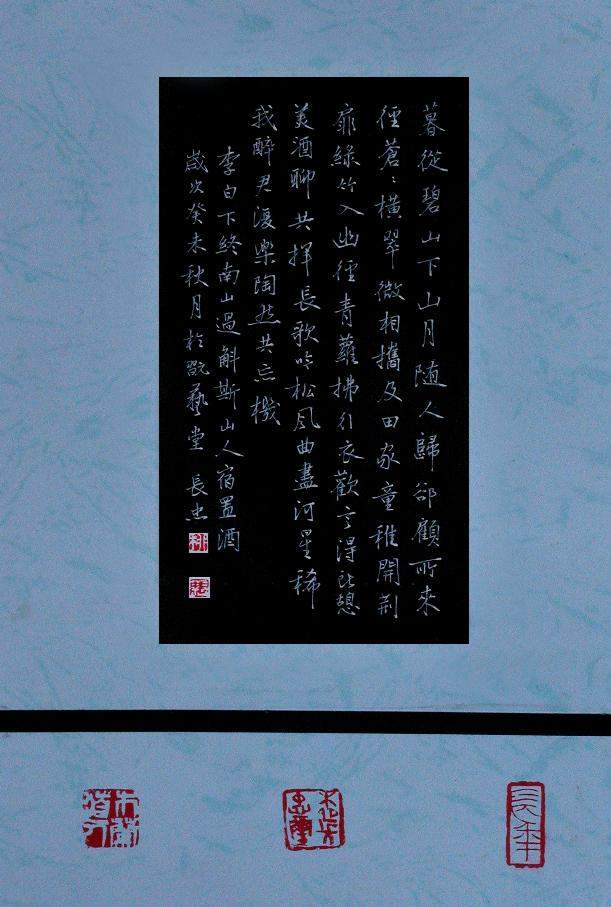 暮從碧山下山月随人歸卻顧所來
徑蒼〻橫翠微相攜及田家童稚開荆
扉綠竹入幽徑青蘿拂行衣歡言得所憩
美酒聊共揮長歌吟松風曲盡河星稀
我醉君復樂陶然共忘機
李白下終南山過斛斯山人宿置酒
歲次癸未秋月於藝堂 長忠
長年